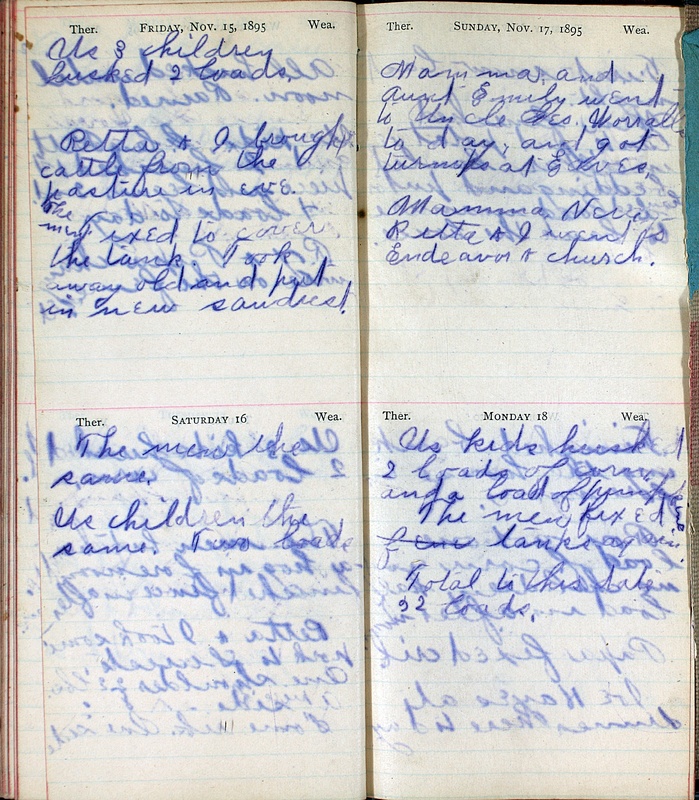 Ther. FRIDAY, NOV. 15, 1895 Wea.
Us 3 children
husked 2 loads.
Retta & I brought
cattle from the
pasture in eve.
The
men fixed to cover
the tank. Took
away old and put
in new
Ther. SATURDAY 16 Wea.
The men the
same.
Us children the
same. Two loads
Ther. SUNDAY, NOV. 17, 1895 Wea.
Mamma, and
Aunt Emily went
to Uncle Geo. Worralls
to day, and got
turnips at
Mamma, Neva
Retta & I went to
Endeavor & church.
Ther. MONDAY 18 Wea.
Us kids husk
2 loads of corn,
and a load of pumpkins
The men fixed
tank again.
Total to this date
32 loads.